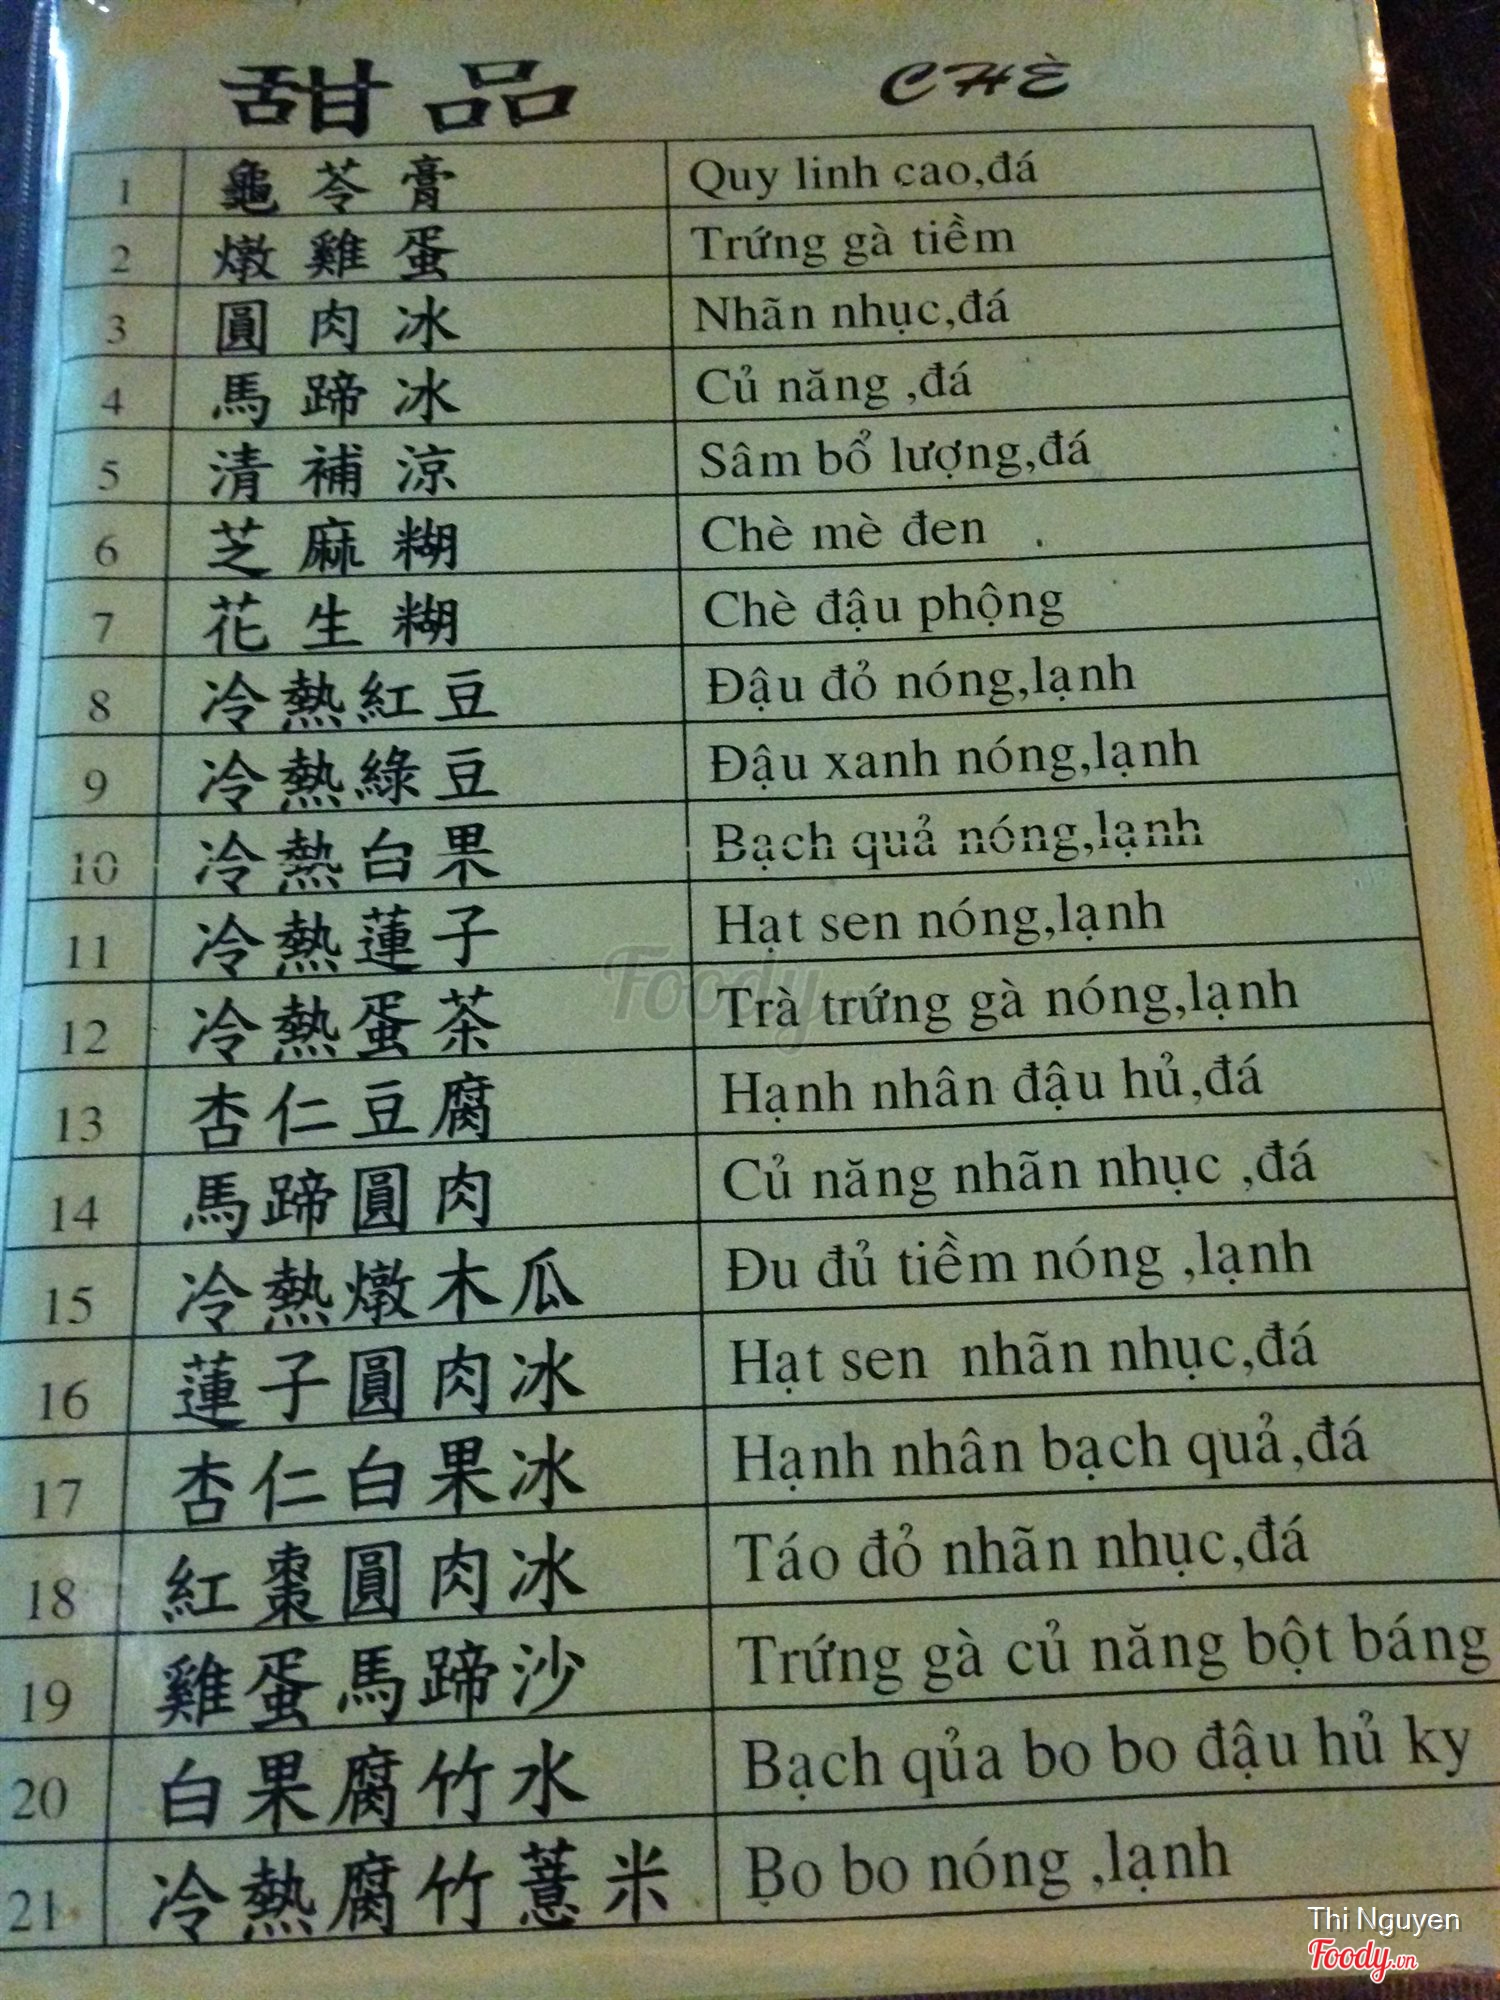 甜品 CHÈ
1 龜苓膏 Quy linh cao,đá
2 燉雞蛋 Trứng gà tiềm
3 圓肉冰 Nhãn nhục,đá
4 馬蹄冰 Củ năng ,đá
5 清補涼 Sâm bổ lượng,đá
6 芝麻糊 Chè mè đen
7 花生糊 Chè đậu phộng
8 冷熱紅豆 Đậu đỏ nóng,lạnh
9 冷熱綠豆 Đậu xanh nóng,lạnh
10 冷熱白果 Bạch quả nóng,lạnh
11 冷熱蓮子 Hạt sen nóng,lạnh
12 冷熱蛋茶 Trà trứng gà nóng,lạnh
13 杏仁豆腐 Hạnh nhân đậu hủ,đá
14 馬蹄圓肉 Củ năng nhãn nhục ,đá
15 冷熱燉木瓜 Đu đủ tiềm nóng ,lạnh
16 蓮子圓肉冰 Hạt sen nhãn nhục,đá
17 杏仁白果冰 Hạnh nhân bạch quả,đá
18 紅棗圓肉冰 Táo đỏ nhãn nhục,đá
19 雞蛋馬蹄沙 Trứng gà củ năng bột báng
20 白果腐竹水 Bạch qủa bo bo đậu hủ ky
21 冷熱腐竹薏米 Bọ bo nóng ,lạnh
Foody.vn
Thi Nguyen
Foody.vn